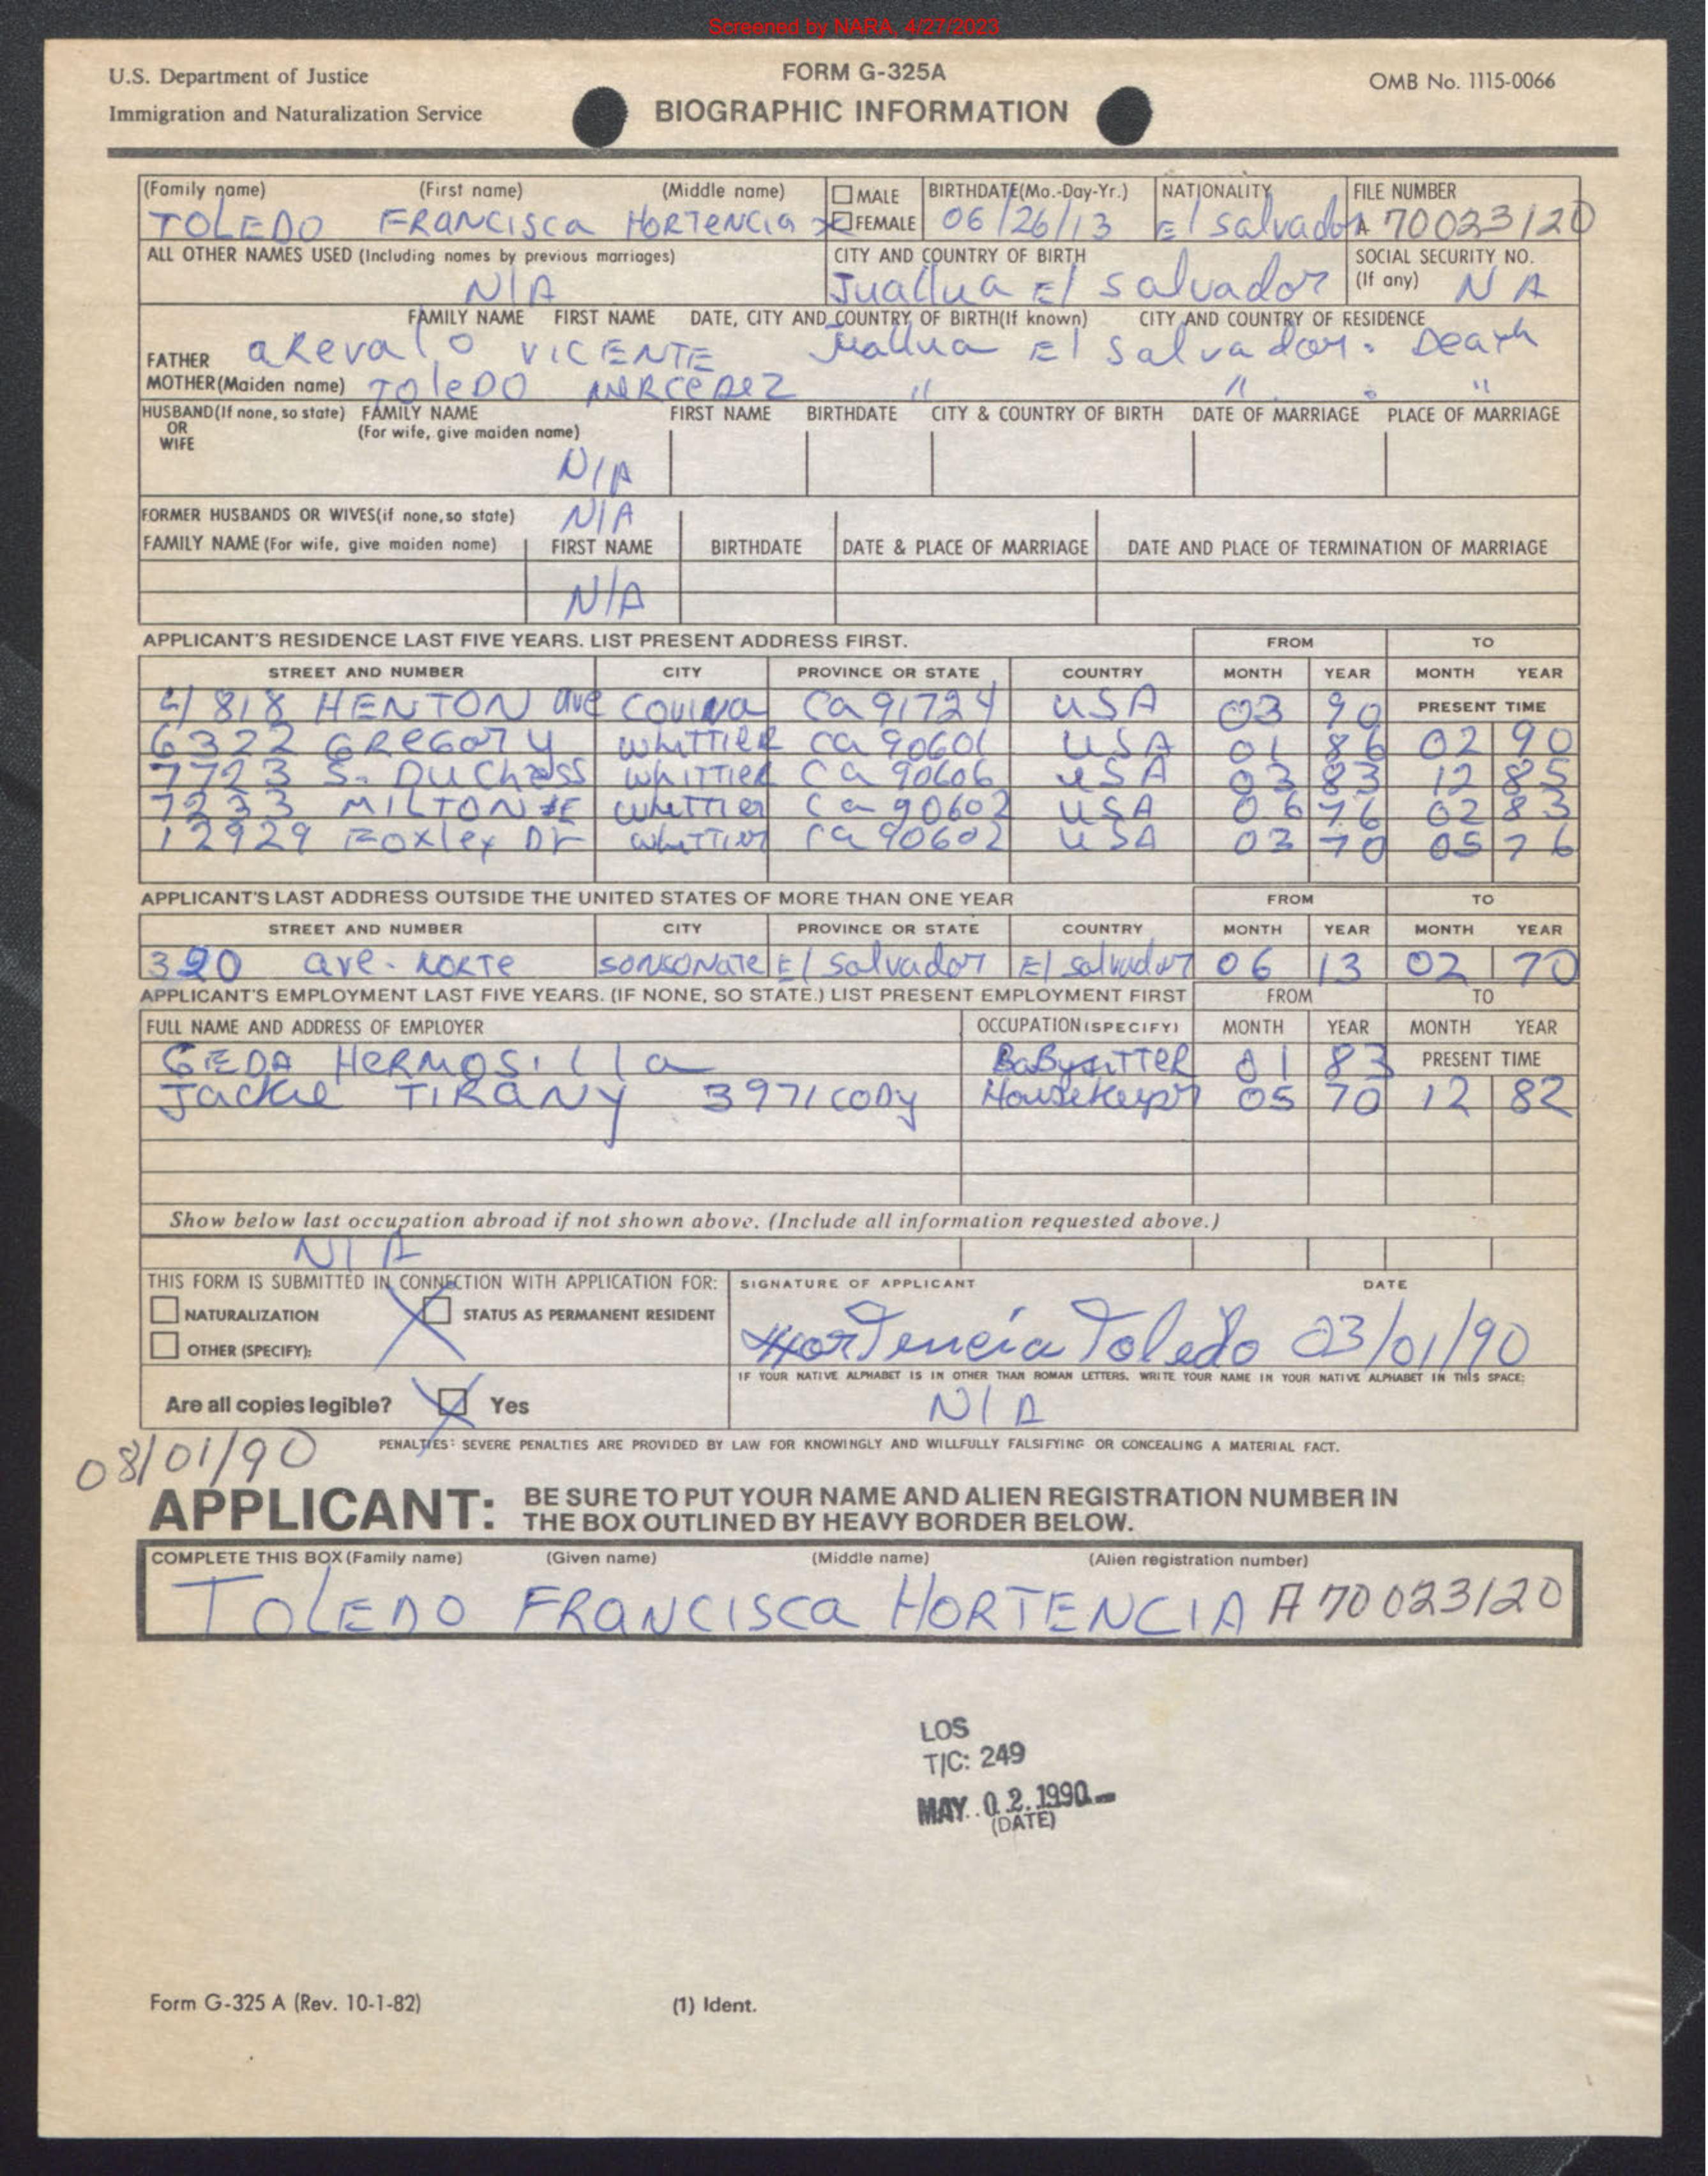 Screened by NARA, 4/27/2023
U.S. Department of Justice
Immigration and Naturalization Service
FORM G-325A
BIOGRAPHIC INFORMATION
OMB No. 1115-0066
(Family name) (First name) (Middle name) MALE BIRTHDATE(Mo.-Day-Yr.) NATIONALITY FILE NUMBER
TOLEDO FRANCISCA HORTENCIA X FEMALE 06/26/13 El Salvador A 70023120
ALL OTHER NAMES USED (Including names by previous marriages) CITY AND COUNTRY OF BIRTH SOCIAL SECURITY NO.
(If any)
N/A Juallua El Salvador N A
FAMILY NAME FIRST NAME DATE, CITY AND COUNTRY OF BIRTH(If known) CITY AND COUNTRY OF RESIDENCE
FATHER arevalo VICENTE Juallua El Salvador. Death
MOTHER(Maiden name) TOleDO MERCEDEZ " " . "
HUSBAND(If none, so state) FAMILY NAME FIRST NAME BIRTHDATE CITY & COUNTRY OF BIRTH DATE OF MARRIAGE PLACE OF MARRIAGE
OR (For wife, give maiden name)
WIFE
N/A
FORMER HUSBANDS OR WIVES(if none,so state) N/A
FAMILY NAME (For wife, give maiden name) FIRST NAME BIRTHDATE DATE & PLACE OF MARRIAGE DATE AND PLACE OF TERMINATION OF MARRIAGE
N/A
APPLICANT'S RESIDENCE LAST FIVE YEARS. LIST PRESENT ADDRESS FIRST. FROM TO
STREET AND NUMBER CITY PROVINCE OR STATE COUNTRY MONTH YEAR MONTH YEAR
4818 HENTON ave COVINA Ca 91724 USA 03 90 PRESENT TIME
6322 GREGORY WHITTIER ca 90601 USA 01 86 02 90
7723 S. DUChess WHITTIER Ca 90606 USA 03 83 12 85
7233 MILTON WHITTIER Ca 90602 USA 06 76 02 83
12929 Foxley Dr WHITTIER Ca 90602 USA 03 70 05 76
APPLICANT'S LAST ADDRESS OUTSIDE THE UNITED STATES OF MORE THAN ONE YEAR FROM TO
STREET AND NUMBER CITY PROVINCE OR STATE COUNTRY MONTH YEAR MONTH YEAR
320 ave. NORTE SONSONATE El Salvador El Salvador 06 13 02 70
APPLICANT'S EMPLOYMENT LAST FIVE YEARS. (IF NONE, SO STATE.) LIST PRESENT EMPLOYMENT FIRST FROM TO
FULL NAME AND ADDRESS OF EMPLOYER OCCUPATION (SPECIFY) MONTH YEAR MONTH YEAR
GEDA HERMOSilla BaBysiTTER 01 83 PRESENT TIME
Jackie TIRANY 3971 CODY Housekeeper 05 70 12 82
Show below last occupation abroad if not shown above. (Include all information requested above.)
N/A
THIS FORM IS SUBMITTED IN CONNECTION WITH APPLICATION FOR: SIGNATURE OF APPLICANT DATE
NATURALIZATION X STATUS AS PERMANENT RESIDENT
OTHER (SPECIFY):
Hortencia Toledo 03/01/90
IF YOUR NATIVE ALPHABET IS IN OTHER THAN ROMAN LETTERS, WRITE YOUR NAME IN YOUR NATIVE ALPHABET IN THIS SPACE:
Are all copies legible? X Yes N/A
PENALTIES: SEVERE PENALTIES ARE PROVIDED BY LAW FOR KNOWINGLY AND WILLFULLY FALSIFYING OR CONCEALING A MATERIAL FACT.
08/01/90
APPLICANT: BE SURE TO PUT YOUR NAME AND ALIEN REGISTRATION NUMBER IN
THE BOX OUTLINED BY HEAVY BORDER BELOW.
COMPLETE THIS BOX (Family name) (Given name) (Middle name) (Alien registration number)
TOLEDO FRANCISCA HORTENCIA A 70023120
LOS
T/C: 249
MAY 02 1990
(DATE)
Form G-325 A (Rev. 10-1-82)
(1) Ident.